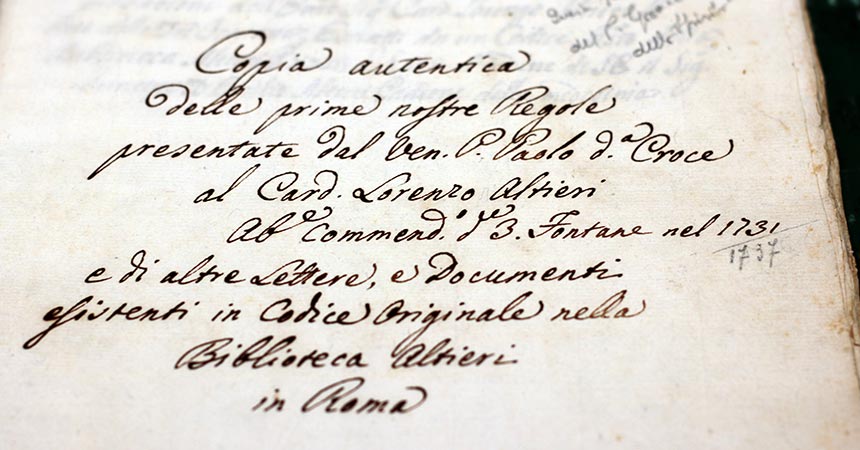 del P. 
della
Copia autentica
delle prime nostre Regole
presentate dal Ven. P. Paolo d.ª Croce
al Card. Lorenzo Altieri
Ab.e Commend.o d.e 3. Fontane nel 1731
1737
e di altre Lettere, e Documenti
esistenti in Codice Originale nella
Biblioteca Altieri
in Roma